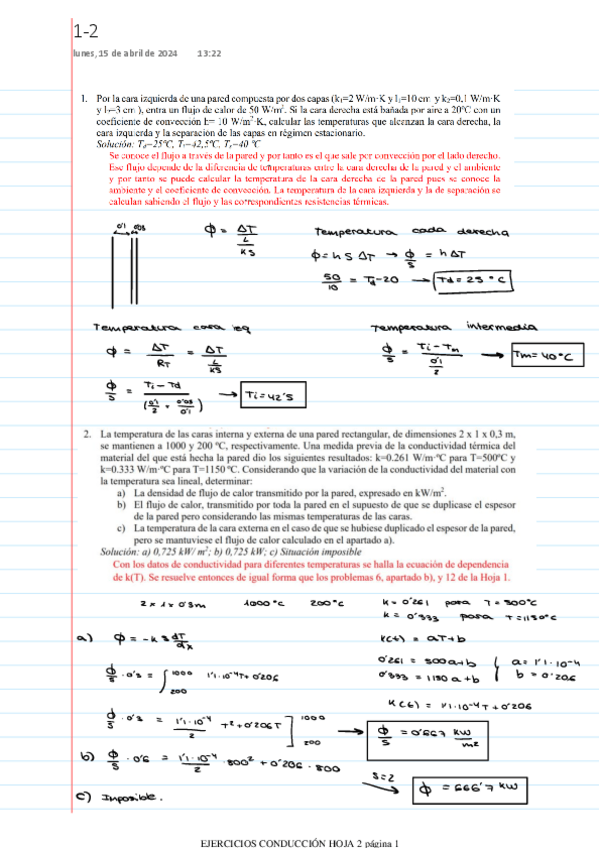 1-2
lunes, 15 de abril de 2024 13:22
1. Por la cara izquierda de una pared compuesta por dos capas (k₁=2 W/m·K y l₁=10 cm y k₂=0,1 W/m·K
y l₂=3 cm ), entra un flujo de calor de 50 W/m². Si la cara derecha está bañada por aire a 20ºC con un
coeficiente de convección h= 10 W/m²·K, calcular las temperaturas que alcanzan la cara derecha, la
cara izquierda y la separación de las capas en régimen estacionario.
Solución: Td=25ºC, Ti=42,5ºC, Ts=40 ºC
Se conoce el flujo a través de la pared y por tanto es el que sale por convección por el lado derecho.
Ese flujo depende de la diferencia de temperaturas entre la cara derecha de la pared y el ambiente
y por tanto se puede calcular la temperatura de la cara derecha de la pared pues se conoce la
ambiente y el coeficiente de convección. La temperatura de la cara izquierda y la de separación se
calculan sabiendo el flujo y las correspondientes resistencias térmicas.
0'1 0'03
ϕ = ΔT / (L / KS)
Temperatura cada derecha
ϕ = h S ΔT → ϕ/S = h ΔT
50/10 = Td-20 → Td = 25 °C
Temperatura cara izq
Temperatura intermedia
ϕ = ΔT / RT = ΔT / (L / KS)
ϕ/S = (Ti - Tm) / (0'1 / 2) → Tm = 40 °C
ϕ/S = (Ti - Td) / (0'1/2 + 0'03/0'1) → Ti = 42'5
2. La temperatura de las caras interna y externa de una pared rectangular, de dimensiones 2 x 1 x 0,3 m,
se mantienen a 1000 y 200 ºC, respectivamente. Una medida previa de la conductividad térmica del
material del que está hecha la pared dio los siguientes resultados: k=0.261 W/m·ºC para T=500ºC y
k=0.333 W/m·ºC para T=1150 ºC. Considerando que la variación de la conductividad del material con
la temperatura sea lineal, determinar:
a) La densidad de flujo de calor transmitido por la pared, expresado en kW/m².
b) El flujo de calor, transmitido por toda la pared en el supuesto de que se duplicase el espesor
de la pared pero considerando las mismas temperaturas de las caras.
c) La temperatura de la cara externa en el caso de que se hubiese duplicado el espesor de la pared,
pero se mantuviese el flujo de calor calculado en el apartado a).
Solución: a) 0,725 kW/ m²; b) 0,725 kW; c) Situación imposible
Con los datos de conductividad para diferentes temperaturas se halla la ecuación de dependencia
de k(T). Se resuelve entonces de igual forma que los problemas 6, apartado b), y 12 de la Hoja 1.
2 x 1 x 0'3m 1000 °C 200 °C K = 0'261 para T = 500°C
K = 0'333 para T = 1150°C
a) ϕ = -K S dT/dx
K(t) = aT+b
0'261 = 500a+b
0'333 = 1150a+b
a = 1'1·10⁻⁴
b = 0'206
ϕ/S · 0'3 = ∫ 1000 200 1'1·10⁻⁴T + 0'206
K(t) = 1'1·10⁻⁴T + 0'206
ϕ/S · 0'3 = 1'1·10⁻⁴/2 T² + 0'206T ] 1000 200 → ϕ/S = 0'667 kW/m²
b) ϕ/S · 0'6 = 1'1·10⁻⁴/2 · 800² + 0'206 · 800 S=2 → ϕ = 666'7 kW
c) Imposible.
EJERCICIOS CONDUCCIÓN HOJA 2 página 1